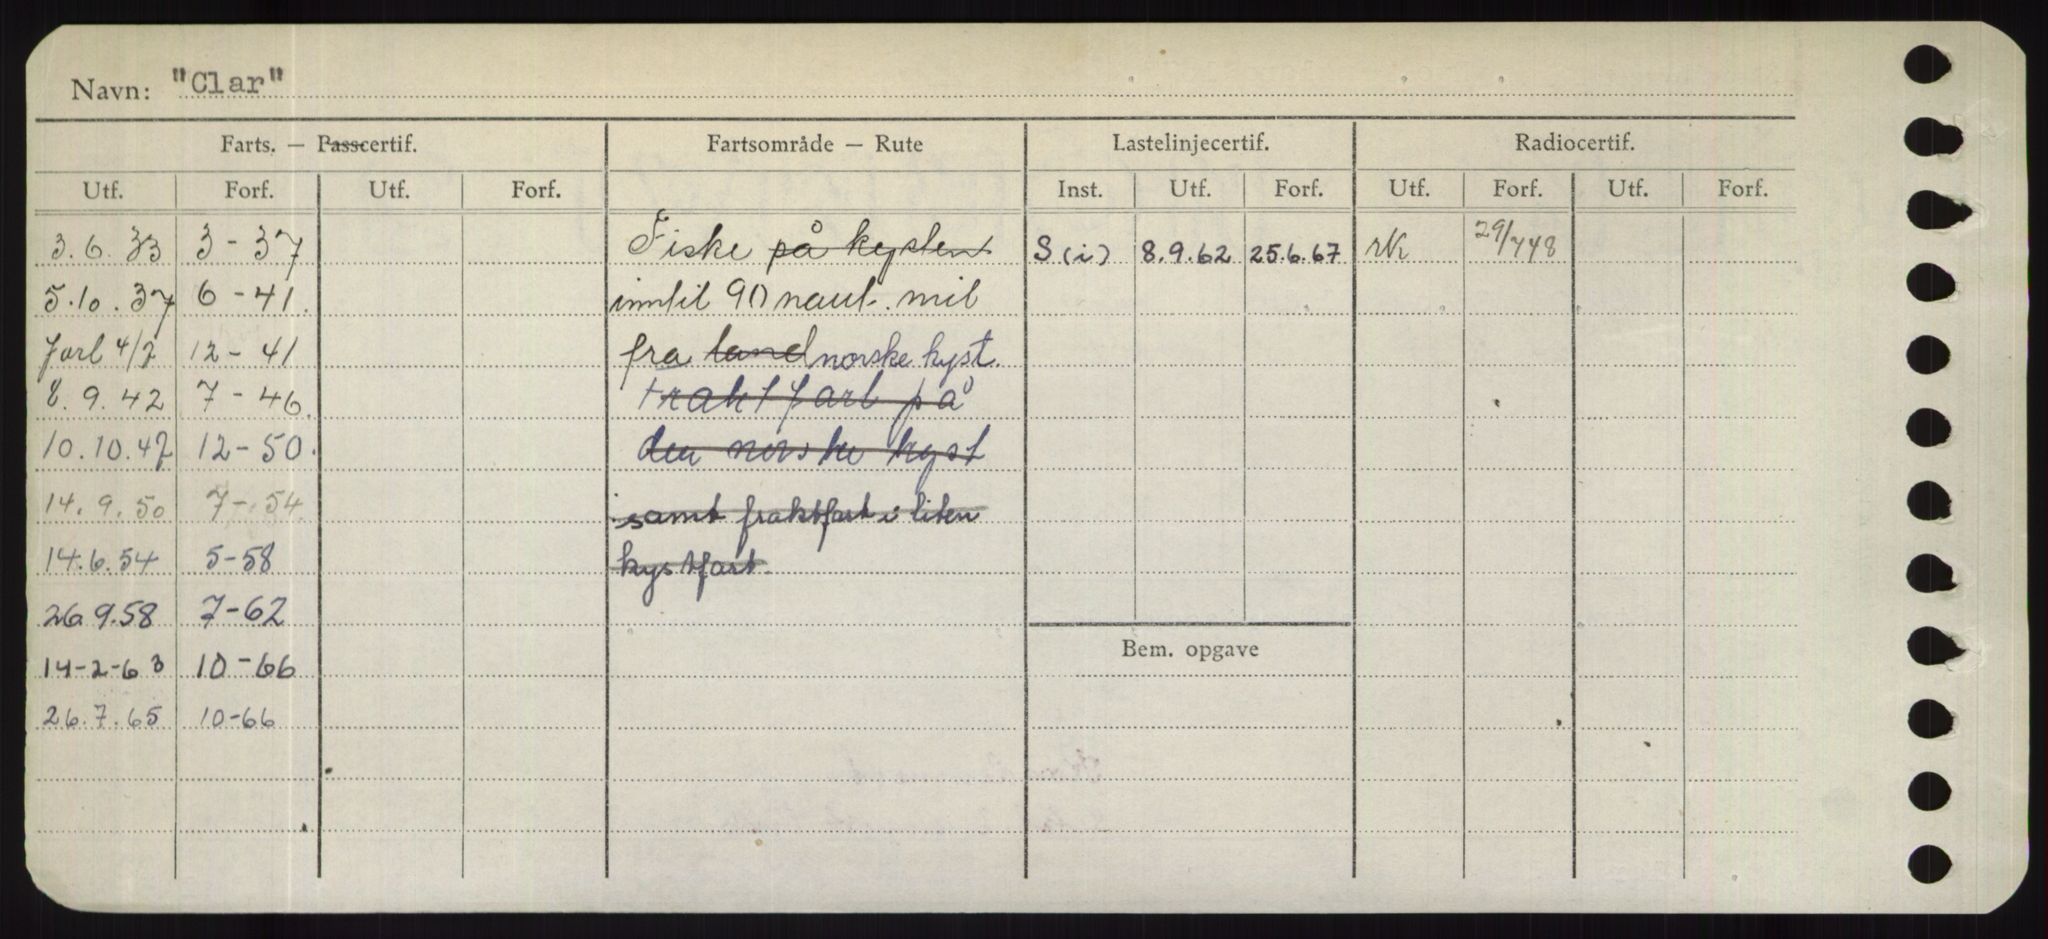 Navn: "Clar"
Farts. — Passcertif. Fartsområde — Rute Lastelinjecertif. Radiocertif.
Utf. Forf. Utf. Forf. Inst. Utf. Forf. Utf. Forf. Utf. Forf.
3.6.33 3-37 Fiske på kysten S(i) 8.9.62 25.6.67 29/748
5.10.37 6-41. inntil 90 naut. mil
4/7 12-41 fra land norske kyst.
8.9.42 7-46. på
10.10.47 12-50. den norske kyst
14.9.50 7-54. samt fraktfart i liten
14.6.54 5-58 kystfart.
26.9.58 7-62
14-2-63 10-66 Bem. opgave
26.7.65 10-66